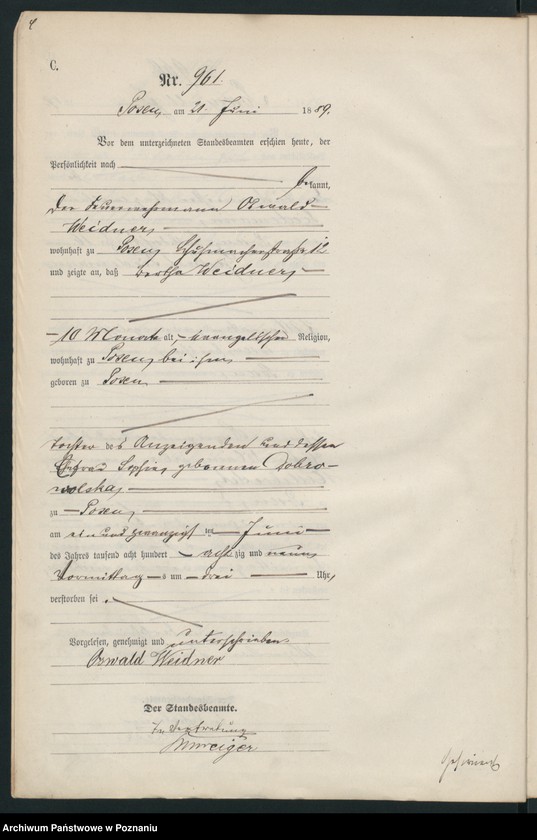 C.
Nr. 961.
Posen, am 21. Juni 1889.
Vor dem unterzeichneten Standesbeamten erschien heute, der
Persönlichkeit nach
bekannt,
der Feuerwehrmann Oswald
Weidner,
wohnhaft zu Posen, Schuhmacherstraße 12
und zeigte an, daß Bertha Weidner,
10 Monate alt, evangelischer Religion,
wohnhaft zu Posen, bei ihm
geboren zu Posen
Tochter des Anzeigenden und dessen
Ehefrau Sophie, geborenen Dobro-
wolska,
zu Posen,
am ein und zwanzigsten Juni
des Jahres tausend acht hundert achtzig und neun,
Vormittags um drei Uhr,
verstorben sei.
Vorgelesen, genehmigt und unterschrieben
Oswald Weidner
Der Standesbeamte.
In Vertretung
Archiwum Państwowe w Poznaniu